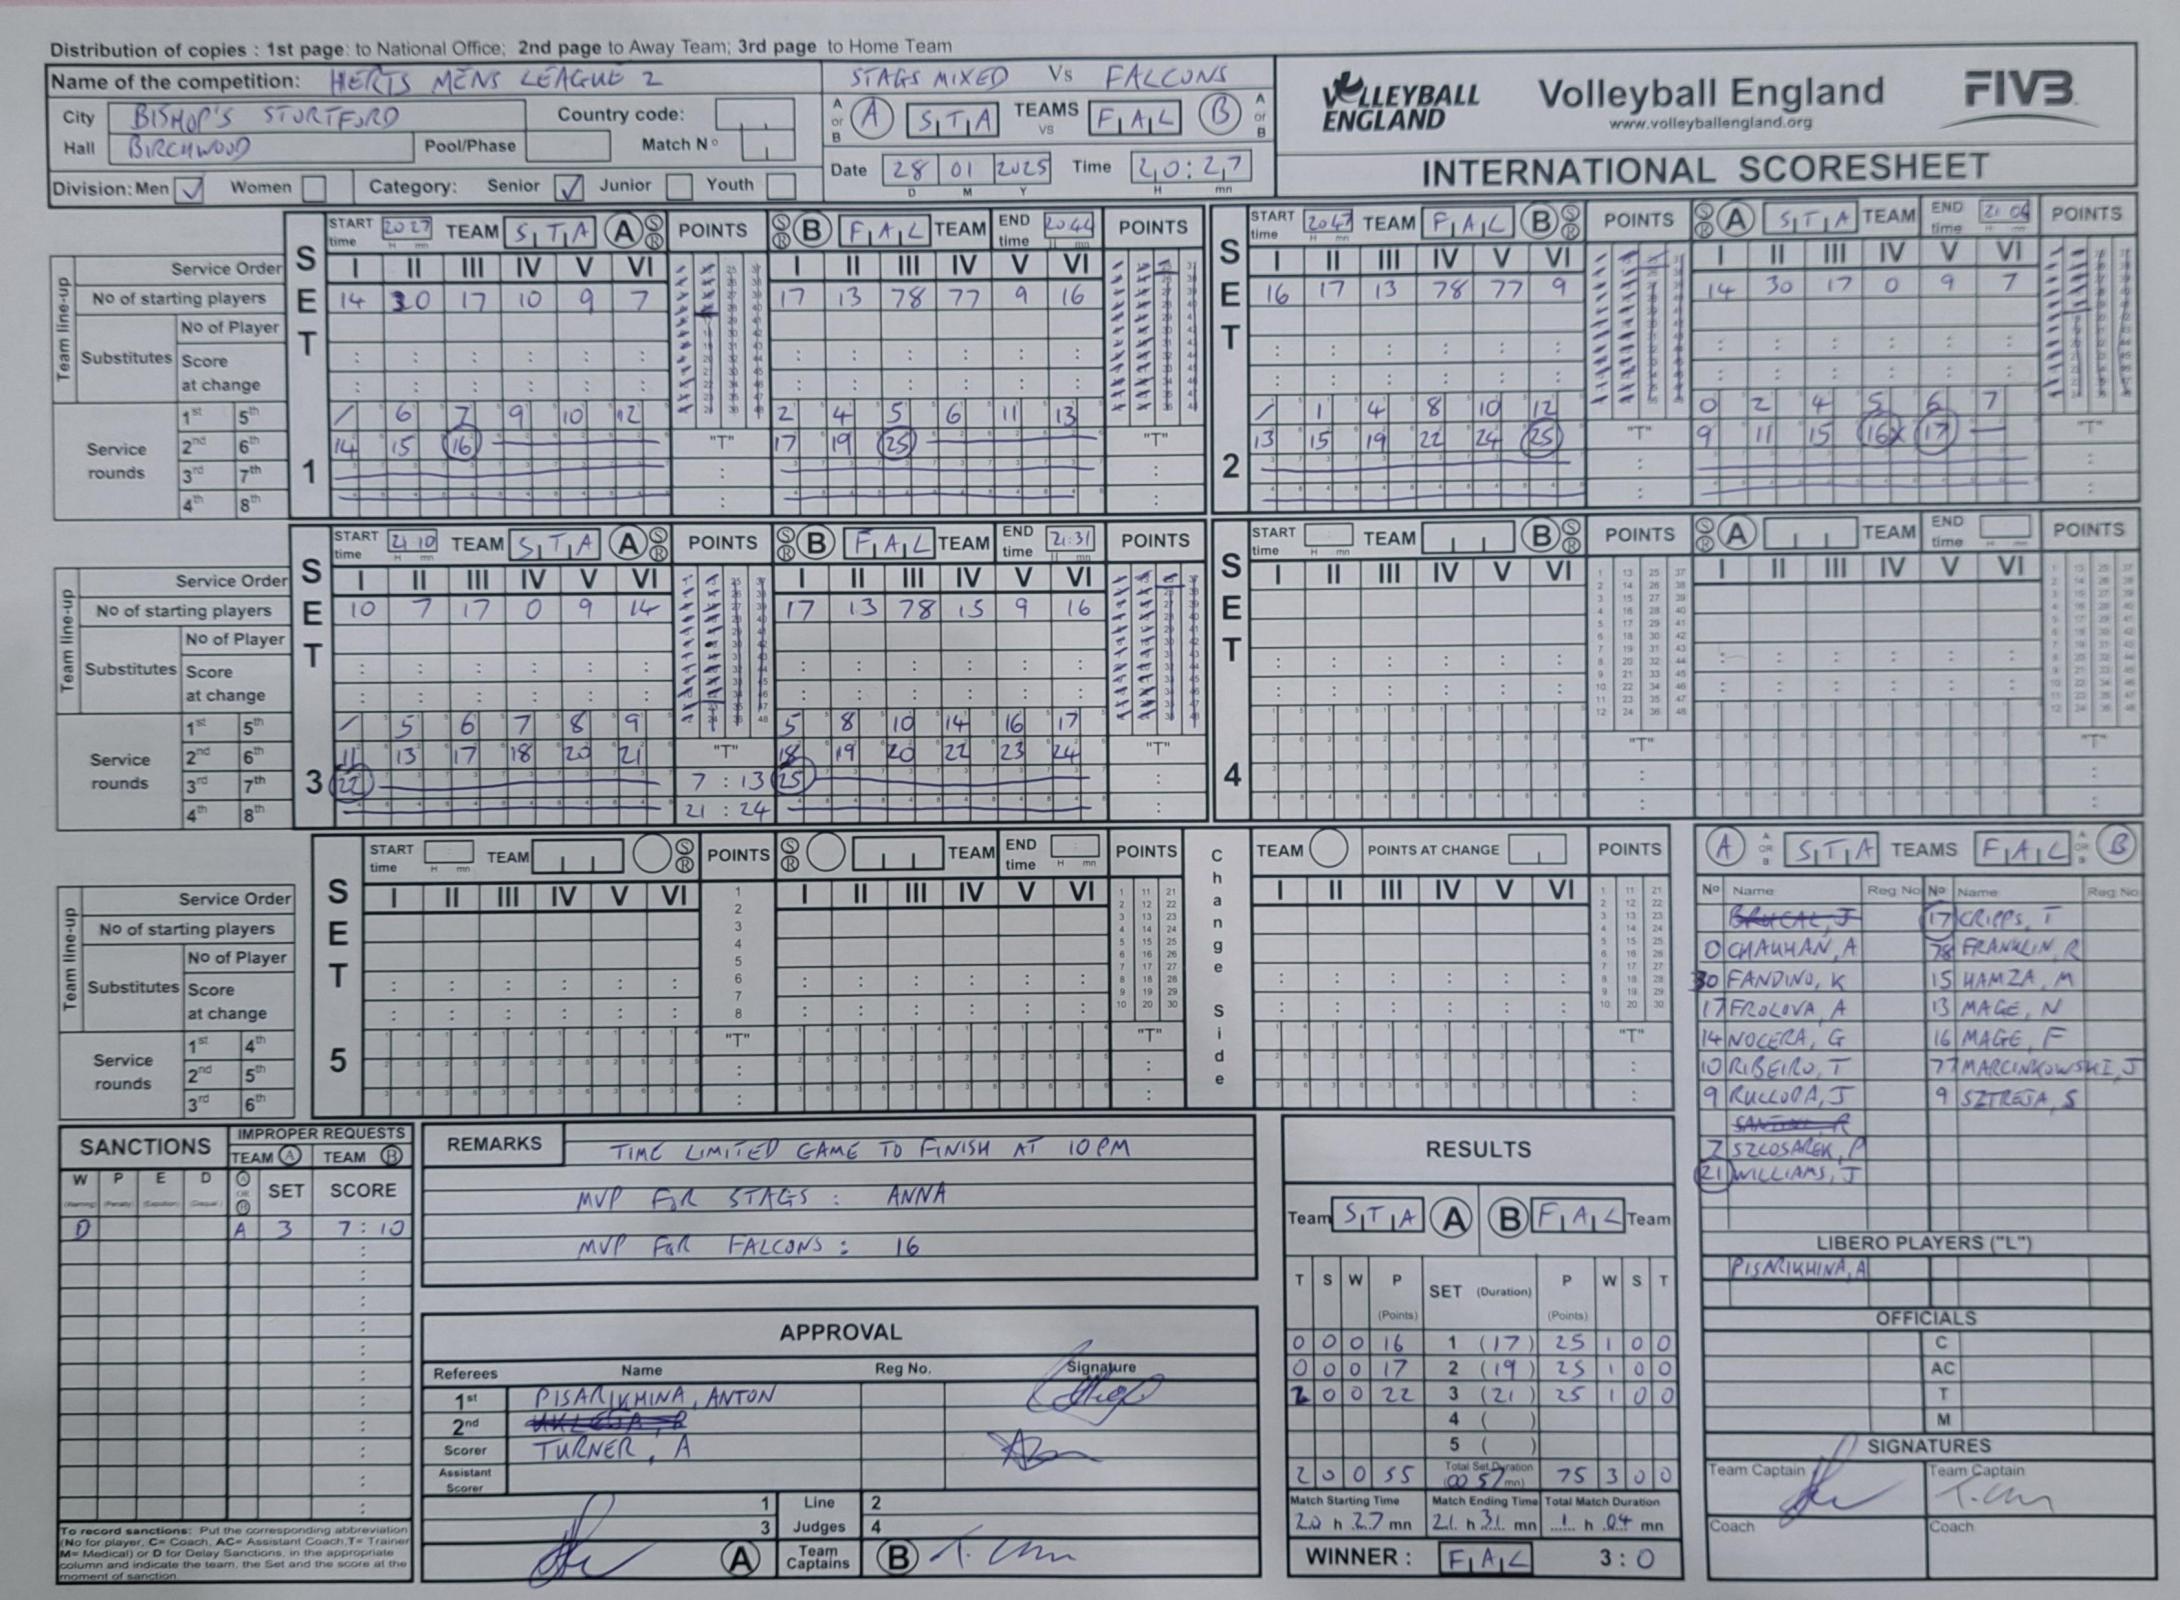 Distribution of copies : 1st page: to National Office; 2nd page to Away Team; 3rd page to Home Team
Name of the competition: HERTS MENS LEAGUE 2
STAGS MIXED Vs FALCONS
City BISHOP'S STORTFORD Country code:
Hall BIRCHWOOD Pool/Phase Match No
A or B A STA TEAMS VS FAL B A or B
Date 28 01 2025 Time 20:27
D M Y H mn
Division: Men ✓ Women Category: Senior ✓ Junior Youth
VOLLEYBALL ENGLAND
Volleyball England
www.volleyballengland.org
FIVB
INTERNATIONAL SCORESHEET
SET 1
START time 20 27 TEAM STA A S R POINTS S R B FAL TEAM END time 20 44 POINTS
Service Order I II III IV V VI I II III IV V VI
Team line-up
No of starting players 14 30 17 10 9 7 17 13 78 77 9 16
Substitutes No of Player
Score at change
Service rounds
1st 5th / 6 7 9 10 12 2 4 5 6 11 13
2nd 6th 14 15 16 "T" 17 19 25 "T"
3rd 7th
4th 8th
SET 2
START time 20 47 TEAM FAL B S R POINTS S R A STA TEAM END time POINTS
I II III IV V VI I II III IV V VI
16 17 13 78 77 9 14 30 17 0 9 7
/ 1 4 8 10 12 0 2 4 5 6 7
13 15 19 22 24 25 "T" 9 11 15 16 x 17 "T"
SET 3
START time 21 10 TEAM STA A S R POINTS S R B FAL TEAM END time 21:31 POINTS
Service Order I II III IV V VI I II III IV V VI
Team line-up
No of starting players 10 7 17 0 9 14 17 13 78 15 9 16
Substitutes No of Player
Score at change
Service rounds
1st 5th / 5 6 7 8 9 5 8 10 14 16 17
2nd 6th 11 13 17 18 20 21 "T" 18 19 20 22 23 24 "T"
3rd 7th 22 7 : 13 25
4th 8th 21 : 24
SET 4
START time TEAM B S R POINTS S R A TEAM END time POINTS
I II III IV V VI I II III IV V VI
"T" "T"
SET 5
START time TEAM S R POINTS S R TEAM END time POINTS
Change Side
TEAM POINTS AT CHANGE POINTS
Service Order I II III IV V VI I II III IV V VI I II III IV V VI
Team line-up
No of starting players
Substitutes No of Player
Score at change
Service rounds
1st 4th "T" "T" "T"
2nd 5th
3rd 6th
A A OR B STA TEAMS FAL A OR B B
No Name Reg No No Name Reg No
BRUCAL, J 17 CRIPPS, T
0 CHAUHAN, A 78 FRANKLIN, R
30 FANDINO, K 15 HAMZA, M
17 FROLOVA, A 13 MAGE, N
14 NOCERA, G 16 MAGE, F
10 RIBEIRO, T 77 MARCINKOWSKI, J
9 RULLODA, J 9 SZTREJA, S
7 SZLOSAREK, P
21 WILLIAMS, J
LIBERO PLAYERS ("L")
PISARIKHINA, A
OFFICIALS
C
AC
T
M
SIGNATURES
Team Captain Team Captain
Coach Coach
SANCTIONS
IMPROPER REQUESTS
TEAM A TEAM B
W P E D A OR B SET SCORE
D A 3 7 : 10
To record sanctions: Put the corresponding abbreviation
(No for player, C= Coach, AC= Assistant Coach,T= Trainer
M= Medical) or D for Delay Sanctions, in the appropriate
column and indicate the team, the Set and the score at the
moment of sanction.
REMARKS
TIME LIMITED GAME TO FINISH AT 10PM
MVP FOR STAGS : ANNA
MVP FOR FALCONS : 16
APPROVAL
Referees Name Reg No. Signature
1st PISARIKHINA, ANTON
2nd
Scorer TURNER, A
Assistant Scorer
1 Line 2
3 Judges 4
A Team Captains B
RESULTS
Team STA A B FAL Team
T S W P (Points) SET (Duration) P (Points) W S T
0 0 0 16 1 (17) 25 1 0 0
0 0 0 17 2 (19) 25 1 0 0
2 0 0 22 3 (21) 25 1 0 0
4 ( )
5 ( )
2 0 0 55 Total Set Duration (00 57 mn) 75 3 0 0
Match Starting Time Match Ending Time Total Match Duration
20 h 27 mn 21 h 31 mn 1 h 04 mn
WINNER : FAL 3 : 0